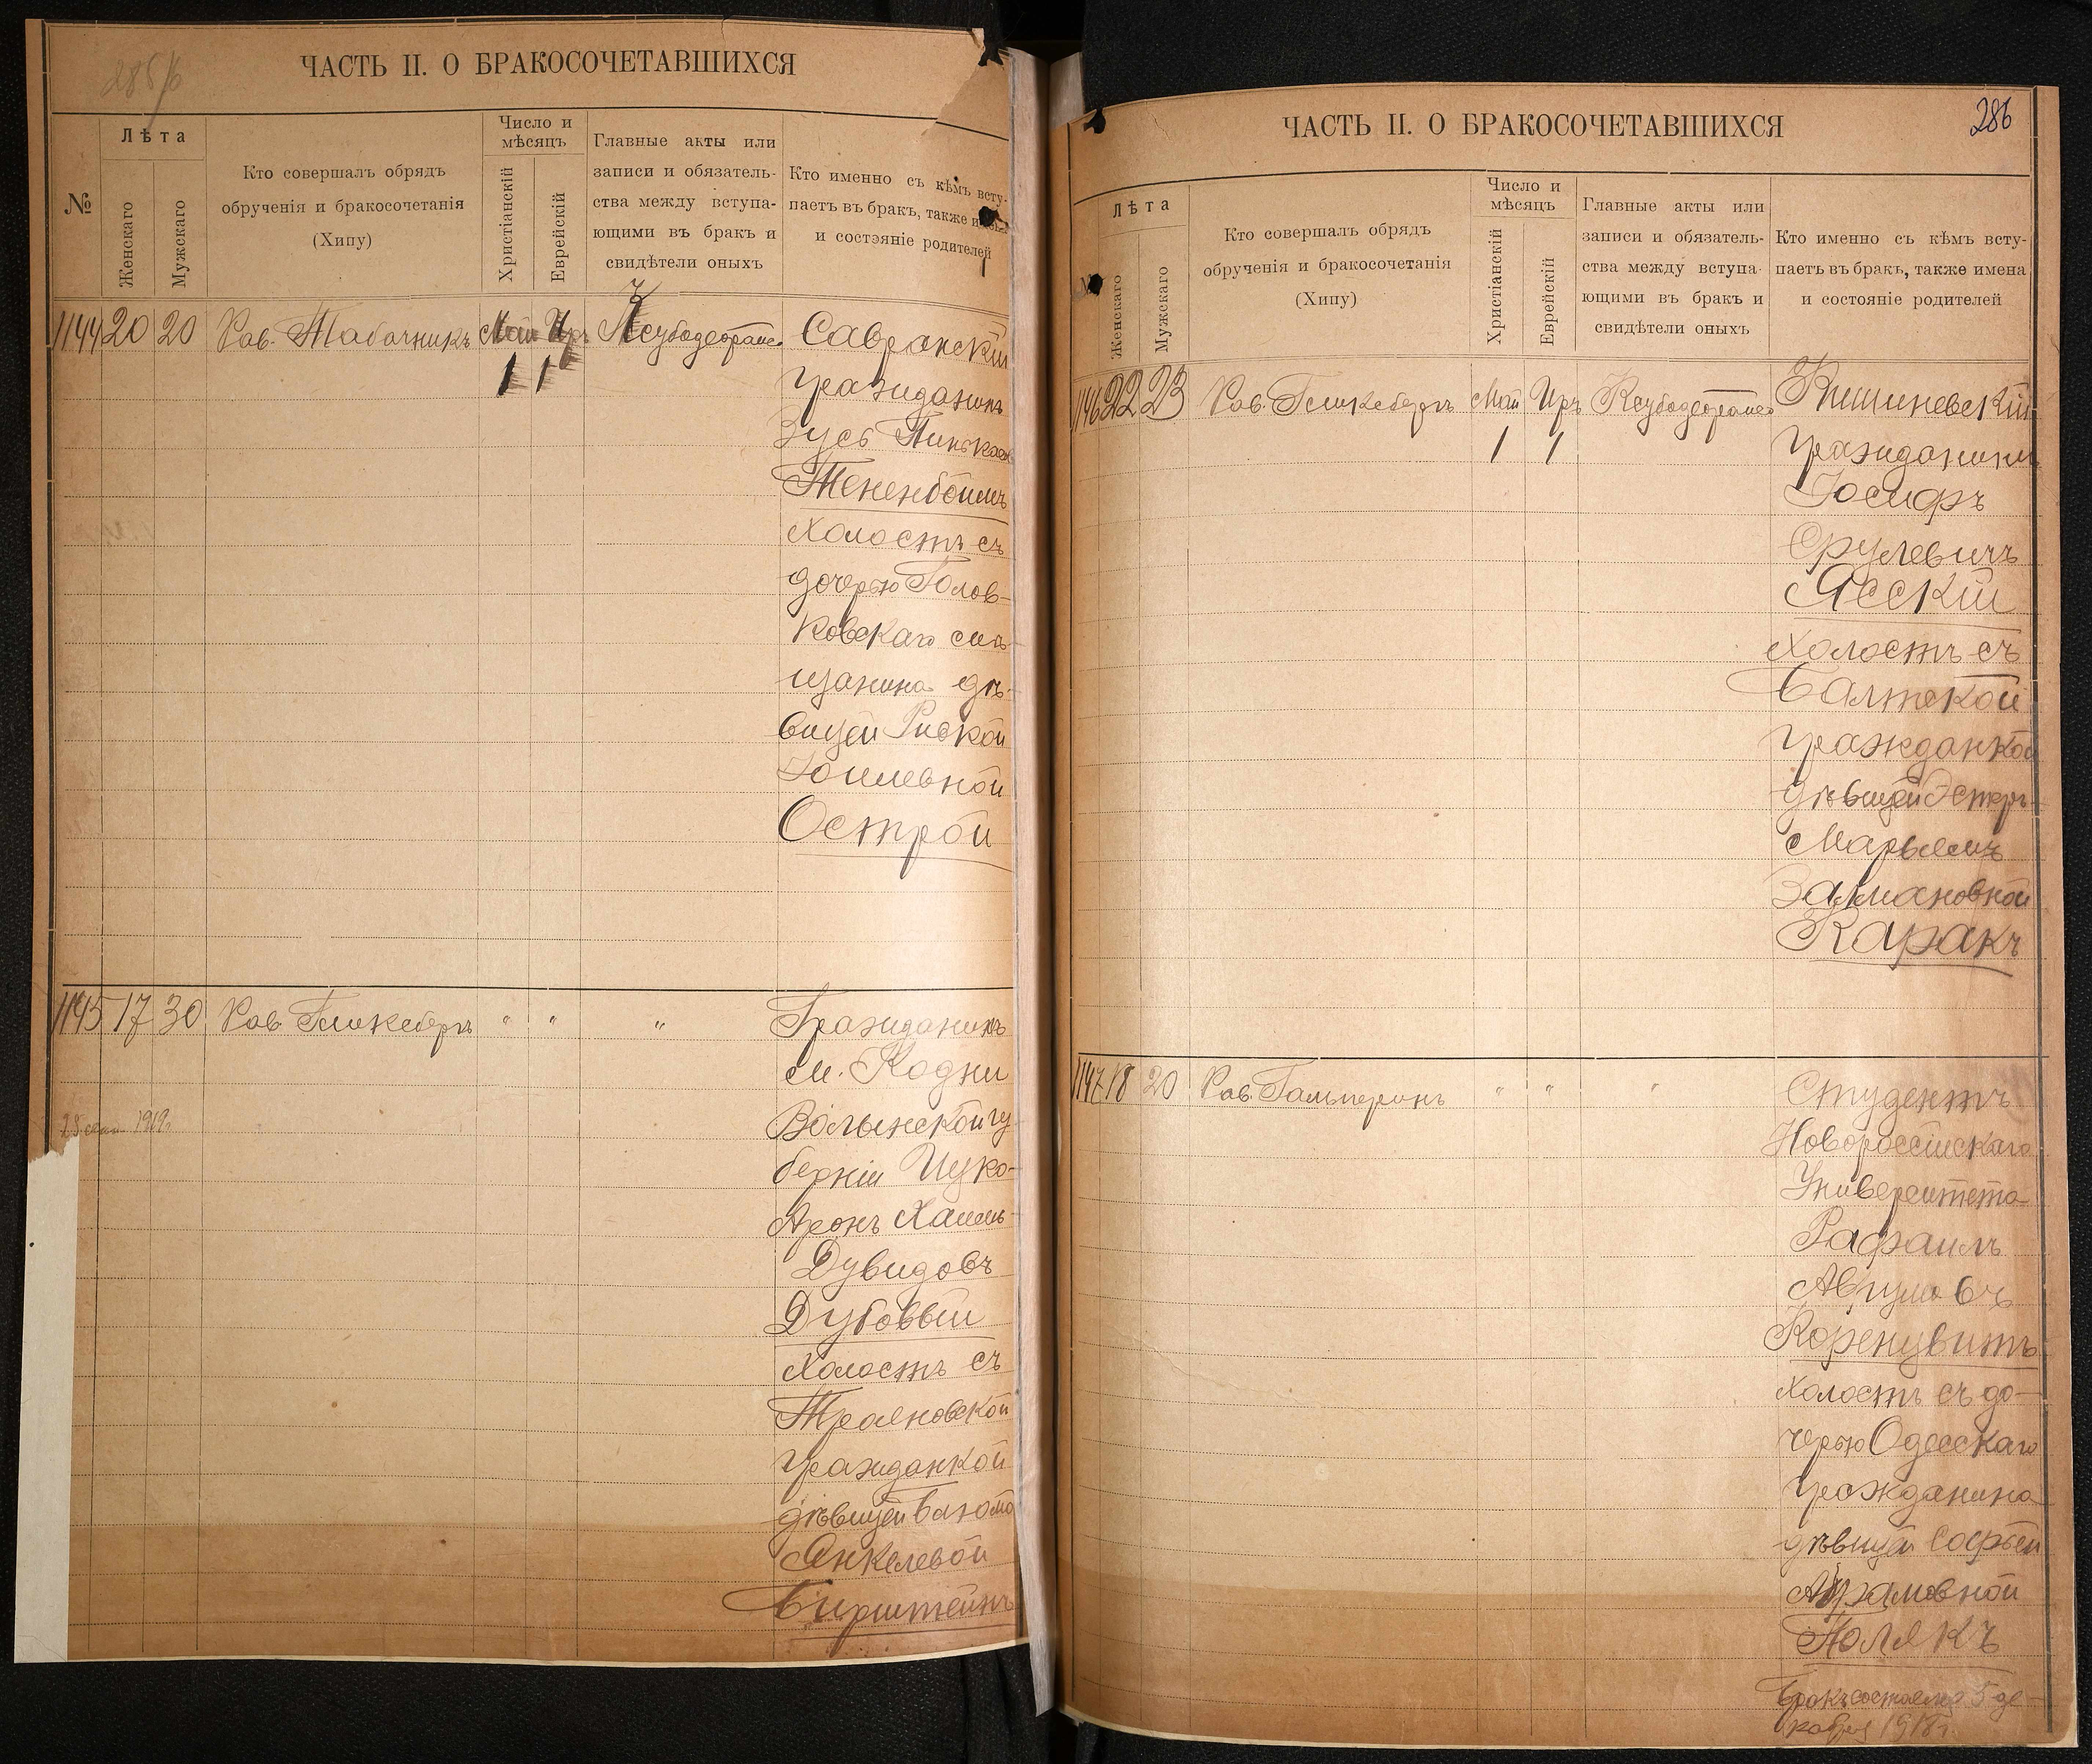 285/б
ЧАСТЬ II. О БРАКОСОЧЕТАВШИХСЯ
№
Лѣта
Женскаго
Мужскаго
Кто совершалъ обрядъ
обрученія и бракосочетанія
(Хипу)
Число и
мѣсяцъ
Христіанскій
Еврейскій
Главные акты или
записи и обязатель-
ства между вступа-
ющими въ бракъ и
свидѣтели оныхъ
Кто именно съ кѣмъ всту-
паетъ въ бракъ, также
и состояніе родителей
1144 20 20 Рав. Табачникъ Май Иръ Ксубодеорайсо Савранскій
1 1 гражданинъ
Зусь
Тененбоймъ
холостъ съ
дочерью Голов-
ковскаго мѣ-
щанина дѣ-
вицей Рисkой
Острой
1145 17 30 Рав. Гликсбергъ " " " Гражданинъ
м. Кодни
Волынской гу-
берніи Ицко-
Аронъ Хаимъ-
Дувидовъ
Дубовый
холостъ съ
Трояновской
гражданкой
дѣвицей
Янкелевой
Бирштейнъ
1919г.
286
ЧАСТЬ II. О БРАКОСОЧЕТАВШИХСЯ
Лѣта
Женскаго
Мужскаго
Кто совершалъ обрядъ
обрученія и бракосочетанія
(Хипу)
Число и
мѣсяцъ
Христіанскій
Еврейскій
Главные акты или
записи и обязатель-
ства между вступа-
ющими въ бракъ и
свидѣтели оныхъ
Кто именно съ кѣмъ всту-
паетъ въ бракъ, также имена
и состояніе родителей
1146 22 23 Рав. Гликсбергъ Май Иръ Ксубодеорайсо Кишиневскій
1 1 гражданинъ
Іосифъ
Срулевичъ
Ясскій
холостъ съ
Балтской
гражданкой
дѣвицей Эстеръ-
Марьемъ
Залмановной
Каракъ
1147 18 20 Рав. Гальперинъ " " " Студентъ
Новороссійскаго
Университета
Рафаилъ
Аврумовъ
Коренувитъ
холостъ съ до-
черью Одесскаго
гражданина
дѣвицей Софьей
Абрамовной
Полякъ
Бракъ состоялся 5 де-
кабря 1918г.